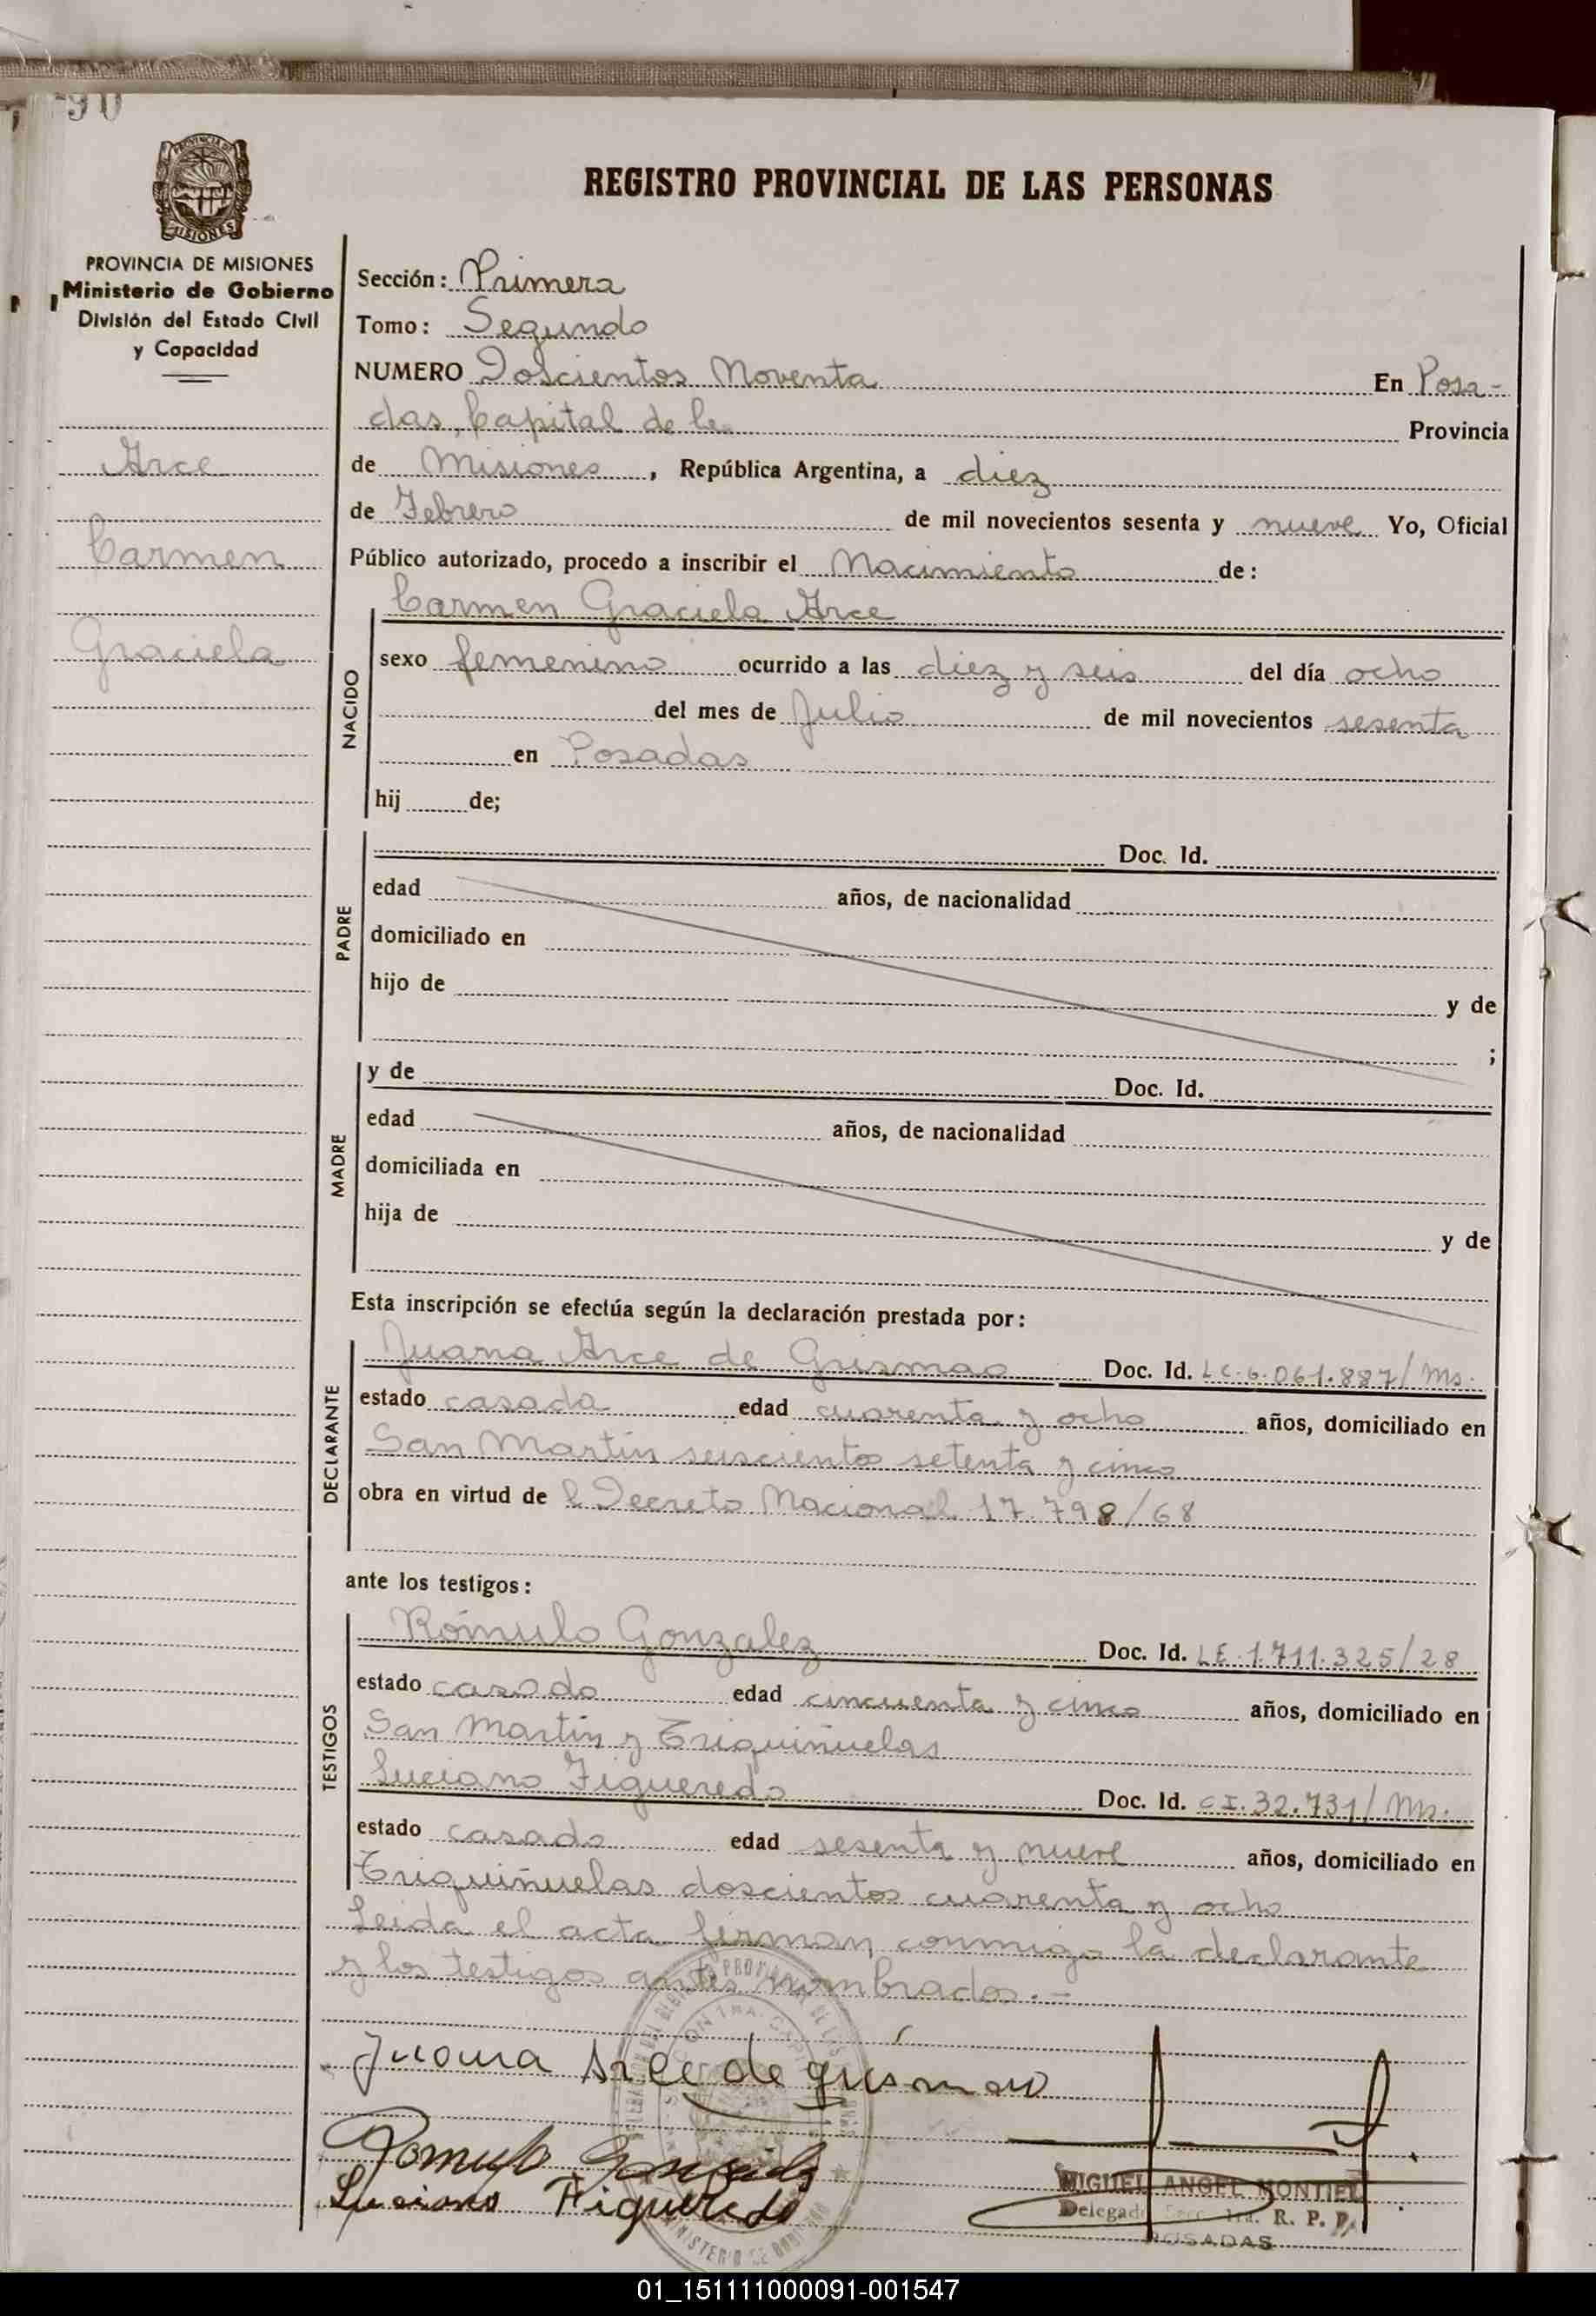 90
PROVINCIA DE
MISIONES
PROVINCIA DE MISIONES
Ministerio de Gobierno
División del Estado Civil
y Capacidad
Arce
Carmen
Graciela
REGISTRO PROVINCIAL DE LAS PERSONAS
Sección: Primera
Tomo: Segundo
NUMERO Doscientos Noventa En Posa-
das, Capital de la Provincia
de Misiones, República Argentina, a diez
de Febrero de mil novecientos sesenta y nueve Yo, Oficial
Público autorizado, procedo a inscribir el Nacimiento de:
Carmen Graciela Arce
NACIDO
sexo femenino ocurrido a las diez y seis del día ocho
del mes de Julio de mil novecientos sesenta
en Posadas
hij de;
PADRE
Doc. Id.
edad años, de nacionalidad
domiciliado en
hijo de y de
;
MADRE
y de Doc. Id.
edad años, de nacionalidad
domiciliada en
hija de y de
Esta inscripción se efectúa según la declaración prestada por:
DECLARANTE
Juana Arce de Gusmao Doc. Id. LC.6.061.887/Ms.
estado casada edad cuarenta y ocho años, domiciliado en
San Martin seiscientos setenta y cinco
obra en virtud de l Decreto Nacional 17.798/68
ante los testigos:
TESTIGOS
Rómulo Gonzalez Doc. Id. LE.1.711.325/28
estado casado edad cincuenta y cinco años, domiciliado en
San Martin y Trigüiñuelas
Luciano Figueredo Doc. Id. CI.32.731/Ms.
estado casado edad sesenta y nueve años, domiciliado en
Triquiñuelas doscientos cuarenta y ocho
Leida el acta firman conmigo la declarante
y los testigos antes nombrados.-
Juana Arce de gusmao
Romulo Gonzalez
Luciano Figueredo
MIGUEL ANGEL MONTIEL
Delegado Secc. 1ra. R. P. P.
POSADAS
01_151111000091-001547